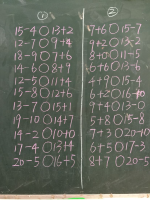 ① ②
15-4○13+2 7+6○15-7
12-7○9+4 9+2○13-2
18-9○7+6 8+0○11-5
14-6○8+9 3+6○13-4
12-5○11+4 4+9○15-4
15-8○12+6 6+2○16-10
13-7○15+1 9+4○13-0
19-10○14+7 5+8○15-8
14-2○10+10 7+3○20-10
17-4○13+4 6+5○17-3
20-5○16+5 8+7○20-5